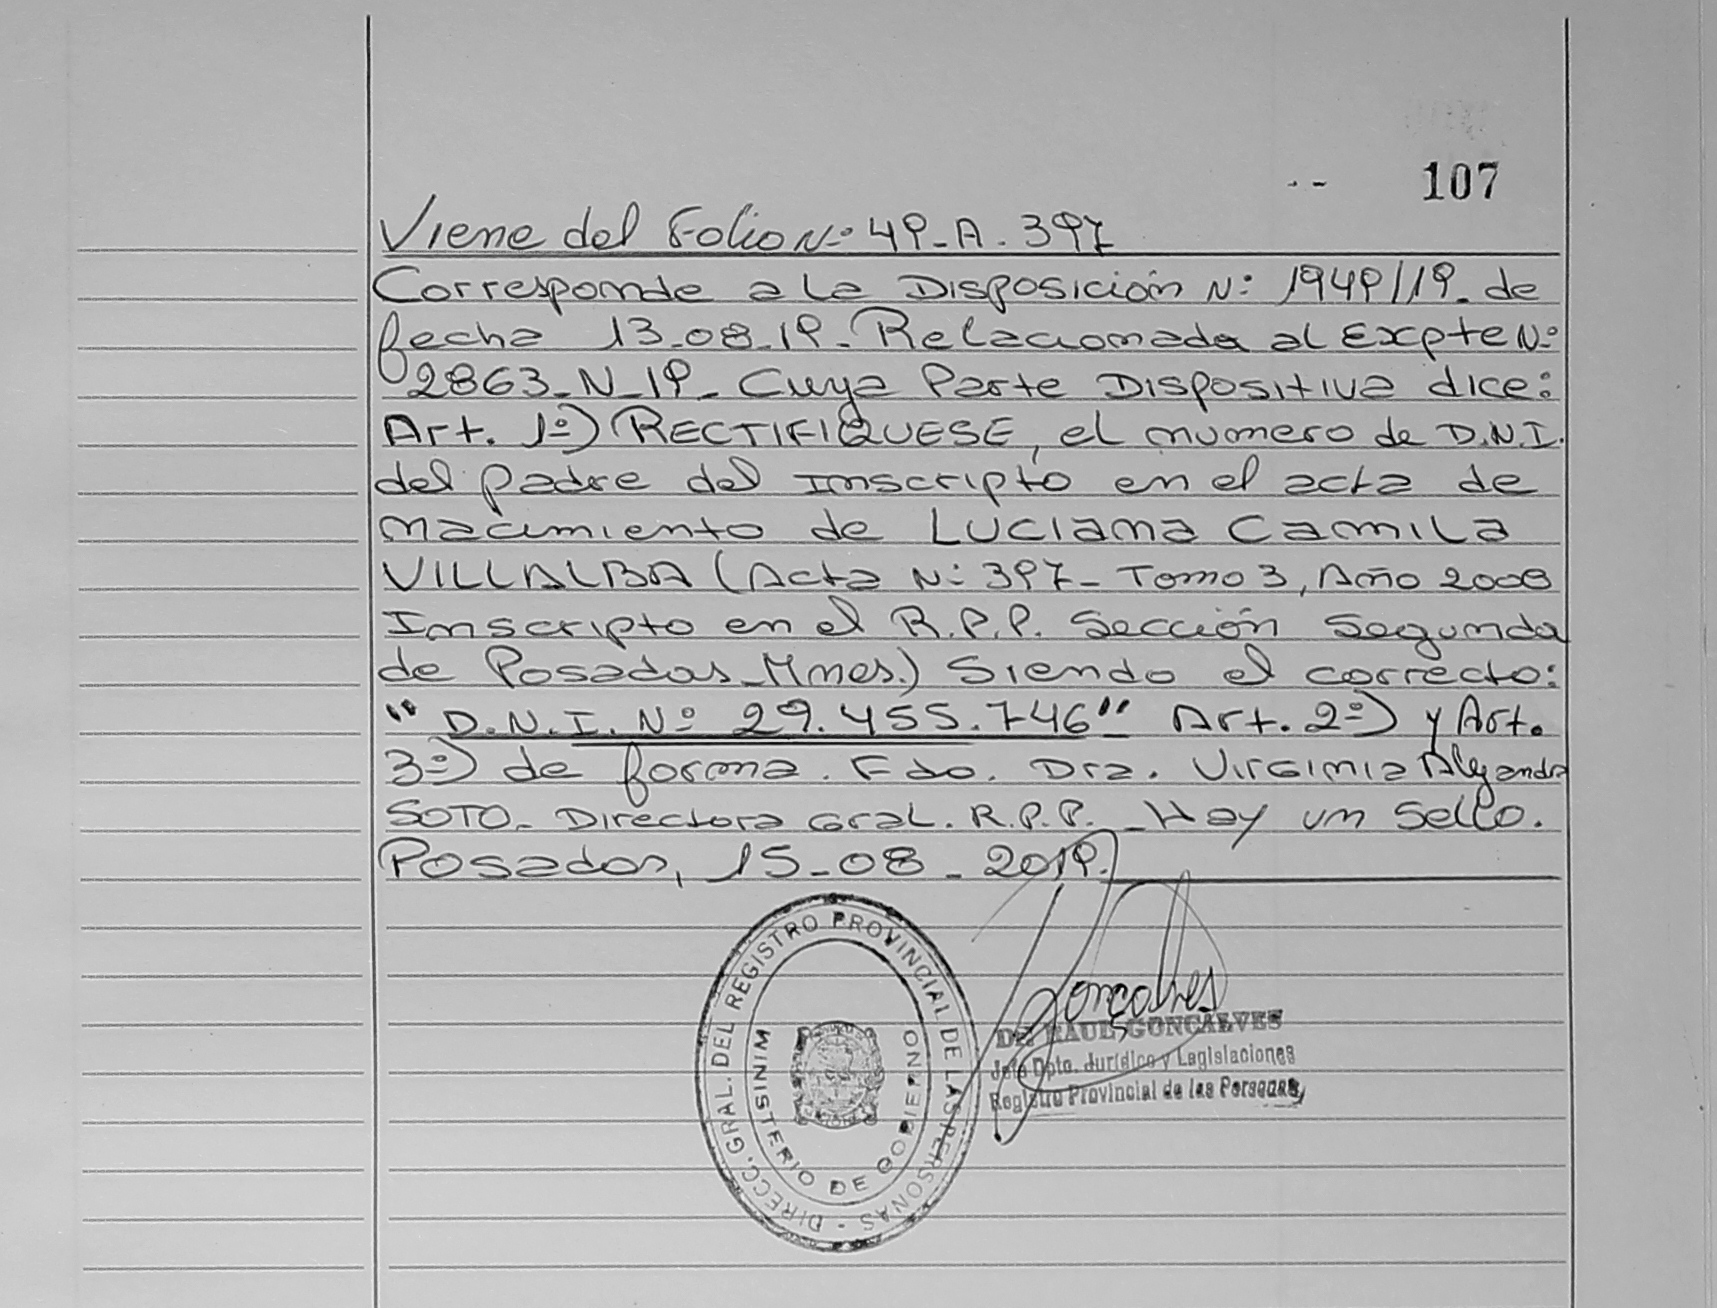 107
Viene del Folio Nº 49-A. 397
Corresponde a la Disposición Nº: 1949/19. de
fecha 13-08-19. Relacionada al Expte Nº
2863-N-19- Cuya Parte Dispositiva dice:
Art. 1º) RECTIFIQUESE, el numero de D.N.I.
del padre del Inscripto en el acta de
nacimiento de Luciana Camila
VILLALBA (Acta Nº: 397- Tomo 3, Año 2008
Inscripto en el R.P.P. Sección Segunda
de Posadas-Mnes.) Siendo el correcto:
"D.N.I. Nº 29.455.746" Art. 2º) y Art.
3º) de forma. Fdo. Dra. Virginia Alejandra
SOTO- Directora Gral. R.P.P. - Hay un Sello.
Posadas, 15-08-2019.
DIRECC. GRAL. DEL REGISTRO PROVINCIAL DE LAS PERSONAS -
MINISTERIO DE GOBIERNO
Gonçalves
RAUL GONCALVES
Jefe Dpto. Jurídico y Legislaciones
Registro Provincial de las Personas